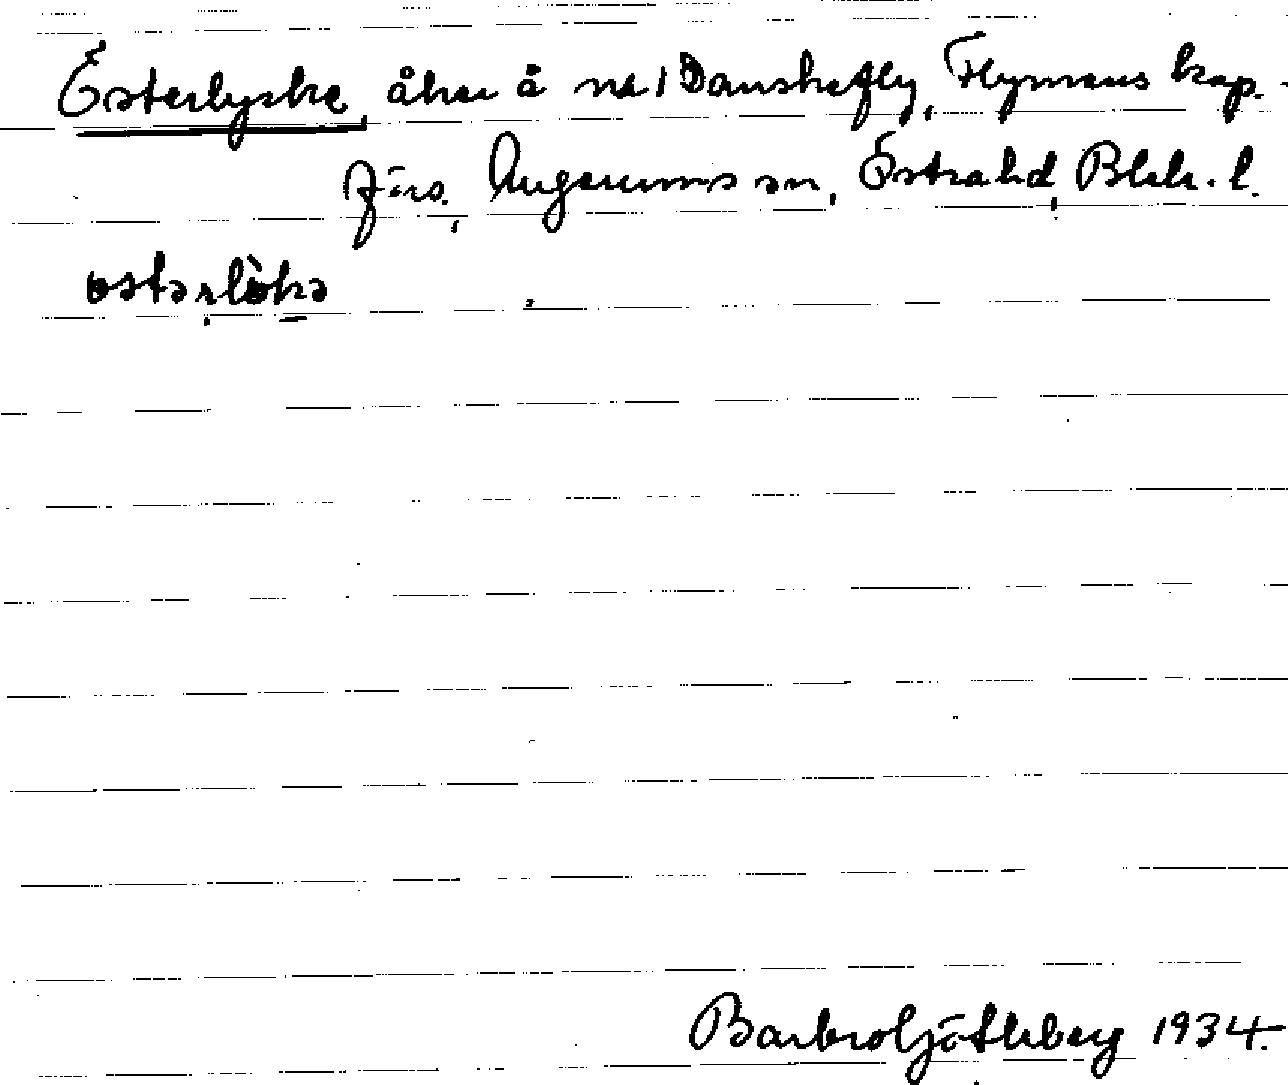 Österlycke, åker å nr 1 Danskefly, Flymens kap.-
förs., Augerums sn, Östra hd, Blek. l.
ostərlökə
Barbro Götleberg 1934.